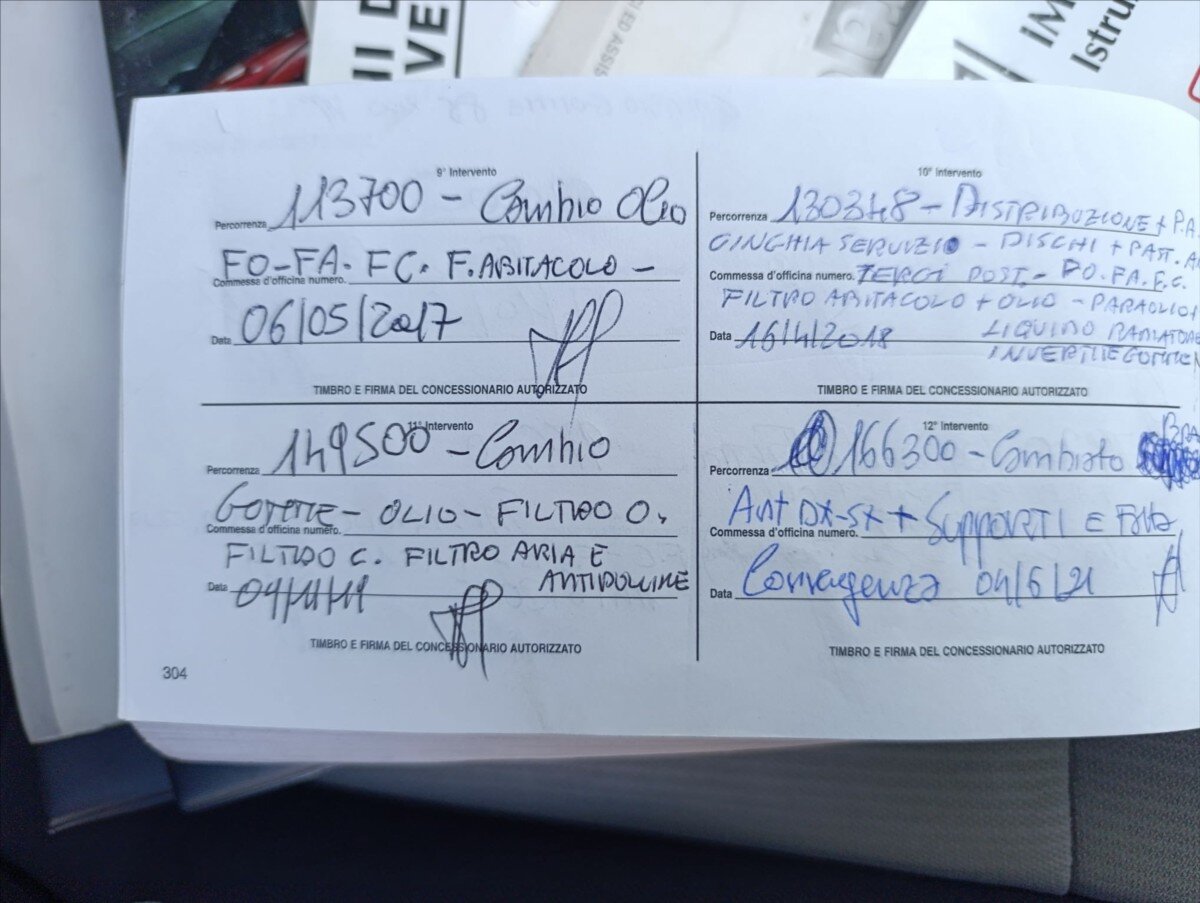 HI D
VE
CI ED ASSIS
iM
Istru
9° Intervento
Percorrenza 113700 - Cambio Olio
FO-FA. FC. F. ABITACOLO -
Commessa d'officina numero.
Data 06/05/2017
TIMBRO E FIRMA DEL CONCESSIONARIO AUTORIZZATO
10° Intervento
Percorrenza 130348 - DISTRIBUZIONE + P.A.
CINGHIA SERVIZIO - DISCHI + PAST. A
Commessa d'officina numero. TERGI POST. - FO. FA. F.C.
FILTRO ABITACOLO + OLIO - PARAOLIO
Data 16/4/2018 LIQUIDO RADIATORE
INVERTITE GOMME
TIMBRO E FIRMA DEL CONCESSIONARIO AUTORIZZATO
11° Intervento
Percorrenza 149500 - Cambio
OLIO - FILTRO O.
Commessa d'officina numero.
FILTRO C. FILTRO ARIA E
Data 04/11/19 ANTIPOLLINE
TIMBRO E FIRMA DEL CONCESSIONARIO AUTORIZZATO
12° Intervento
BRA
Percorrenza 166300 - Cambiato
Ant DX-SX + Supporti E
Commessa d'officina numero.
Data Convergenza 04/6/21
TIMBRO E FIRMA DEL CONCESSIONARIO AUTORIZZATO
304